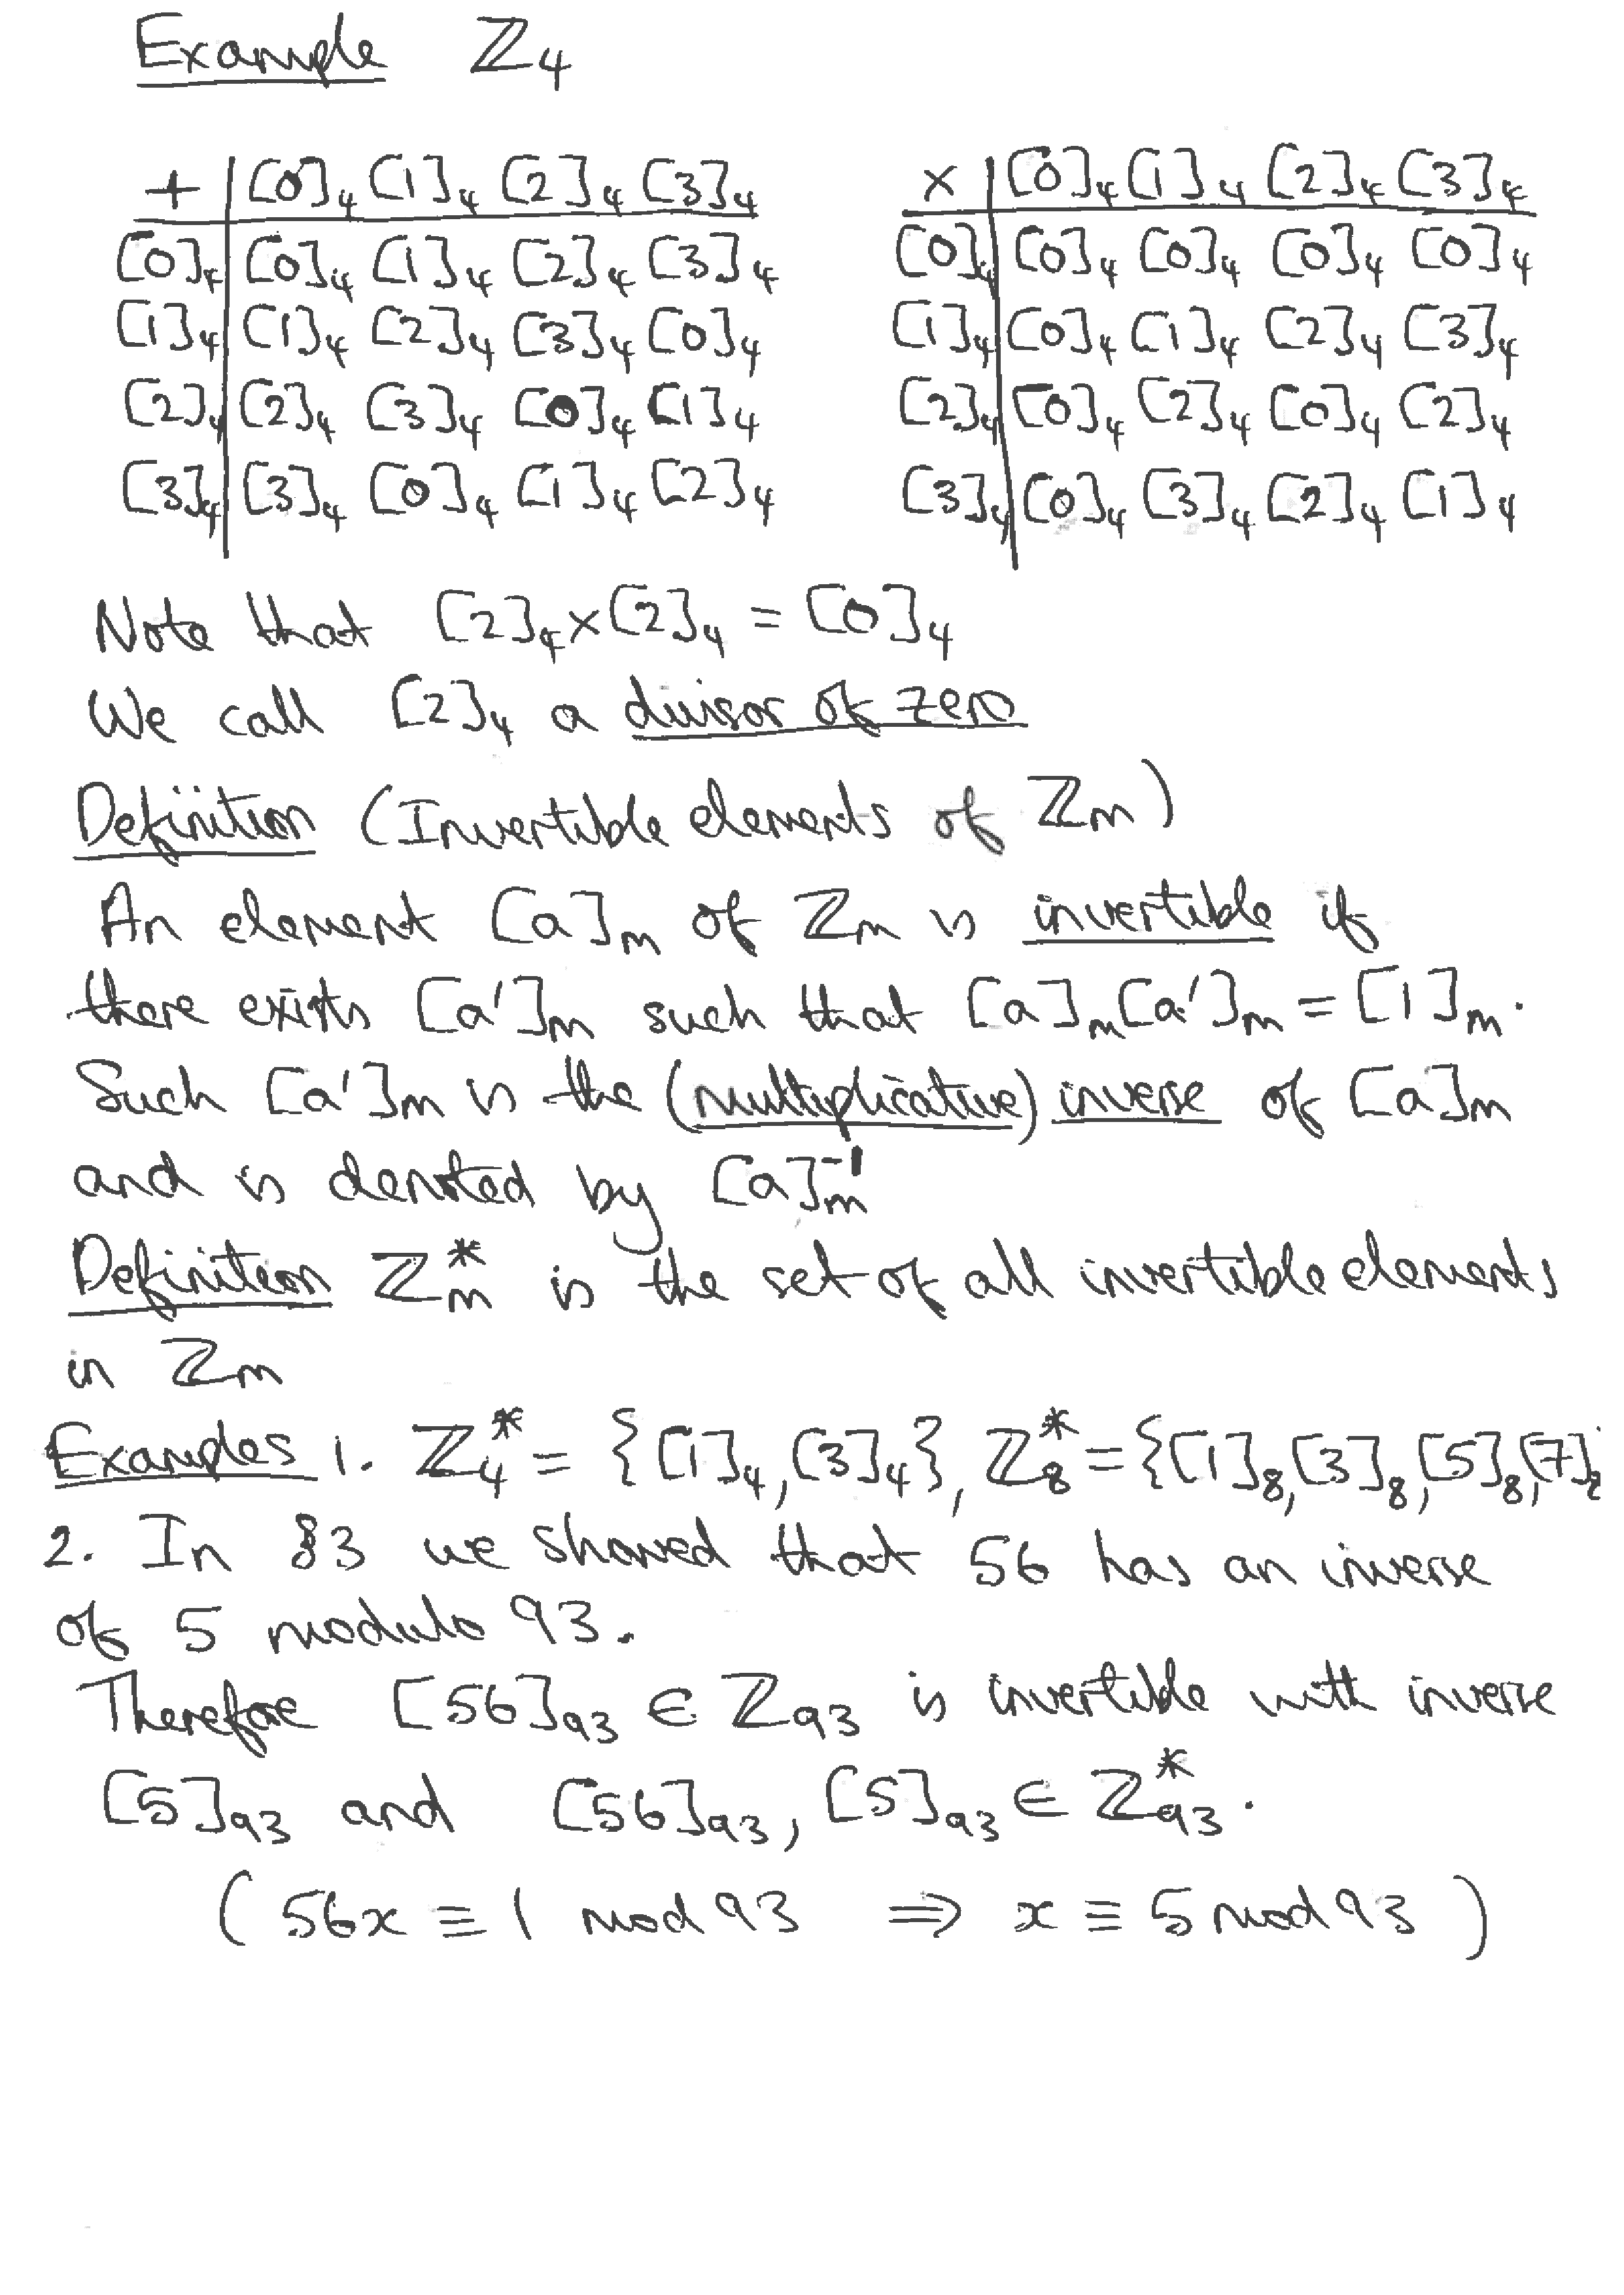 Example ℤ₄
+ | [0]₄ [1]₄ [2]₄ [3]₄   × | [0]₄ [1]₄ [2]₄ [3]₄
[0]₄ | [0]₄ [1]₄ [2]₄ [3]₄   [0]₄ | [0]₄ [0]₄ [0]₄ [0]₄
[1]₄ | [1]₄ [2]₄ [3]₄ [0]₄   [1]₄ | [0]₄ [1]₄ [2]₄ [3]₄
[2]₄ | [2]₄ [3]₄ [0]₄ [1]₄   [2]₄ | [0]₄ [2]₄ [0]₄ [2]₄
[3]₄ | [3]₄ [0]₄ [1]₄ [2]₄   [3]₄ | [0]₄ [3]₄ [2]₄ [1]₄
Note that [2]₄×[2]₄ = [0]₄
We call [2]₄ a divisor of zero
Definition (Invertible elements of ℤₘ)
An element [a]ₘ of ℤₘ is invertible if
there exists [a′]ₘ such that [a]ₘ[a′]ₘ = [1]ₘ.
Such [a′]ₘ is the (multiplicative) inverse of [a]ₘ
and is denoted by [a]ₘ⁻¹
Definition ℤₘ* is the set of all invertible elements
in ℤₘ
Examples 1. ℤ₄* = {[1]₄, [3]₄}, ℤ₈* = {[1]₈, [3]₈, [5]₈, [7]₈
2. In §3 we showed that 56 has an inverse
of 5 modulo 93.
Therefore [56]₉₃ ∈ ℤ₉₃ is invertible with inverse
[5]₉₃ and [56]₉₃, [5]₉₃ ∈ ℤ₉₃*.
(56x ≡ 1 mod 93 ⇒ x ≡ 5 mod 93)